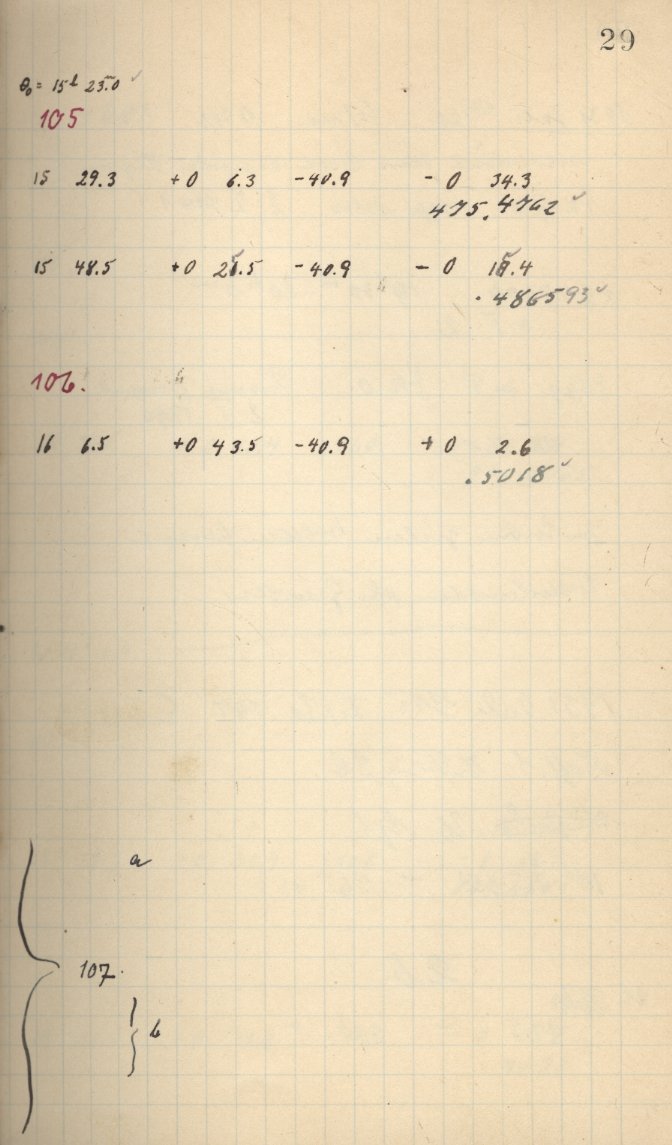 29
θ₀ = 15h 23.0 ✓
105
15 29.3 +0 6.3 -40.9 - 0 34.3
475.4762 ✓
15 48.5 +0 25.5 -40.9 - 0 15.4
.486593 ✓
106.
16 6.5 +0 43.5 -40.9 + 0 2.6
.5018 ✓
a
107.
b